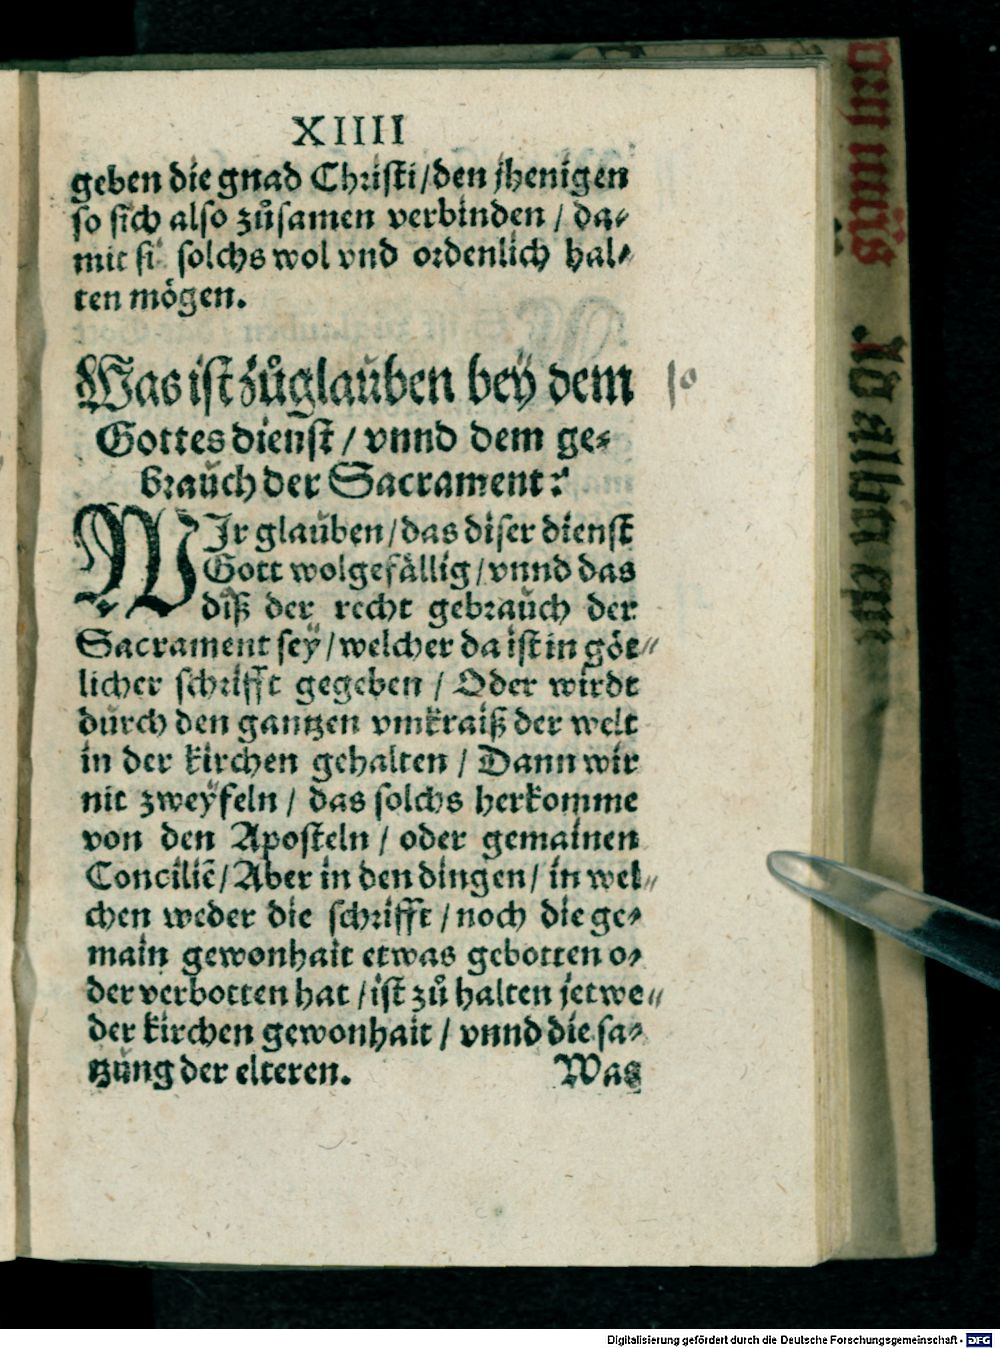 XIIII
geben die gnad Christi / den jhenigen
so sich also zůsamen verbinden / da-
mit si solchs wol vnd ordenlich hal-
ten mögen.
Was ist zůglauben bey dem
Gottes dienst / vnnd dem ge-
brauch der Sacrament?
WIr glauben / das diser dienst
Gott wolgefällig / vnnd das
diß der recht gebrauch der
Sacrament sey / welcher da ist in göt-
licher schrifft gegeben / Oder wirdt
durch den gantzen vmkraiß der welt
in der kirchen gehalten / Dann wir
nit zweyfeln / das solchs herkomme
von den Aposteln / oder gemainen
Conciliẽ / Aber in den dingen / in wel-
chen weder die schrifft / noch die ge-
main gewonhait etwas gebotten o-
der verbotten hat / ist zů halten jetwe-
der kirchen gewonhait / vnnd die sa-
tzung der elteren.
Was
Digitalisierung gefördert durch die Deutsche Forschungsgemeinschaft - DFG